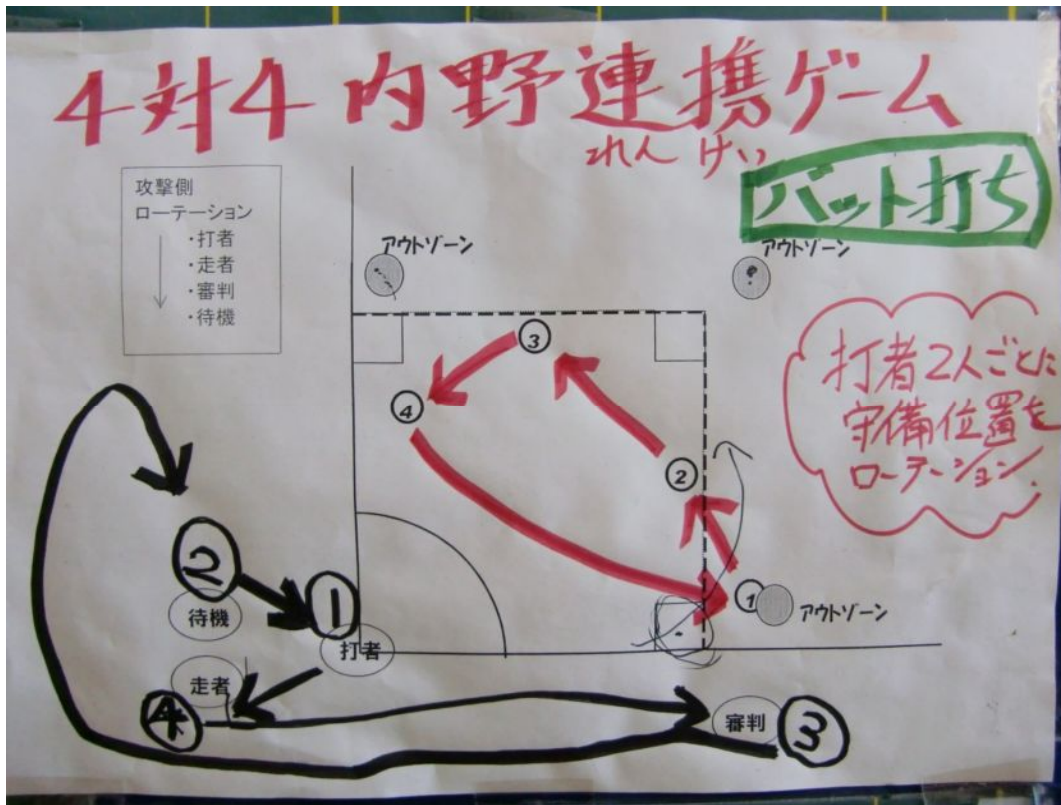 4対4 内野連携ゲーム
れんけい
バット打ち
攻撃側
ローテーション
・打者
・走者
・審判
・待機
アウトゾーン
アウトゾーン
打者2人ごとに
守備位置を
ローテーション.
③
④
②
①
アウトゾーン
②
待機
①
打者
走者
④
審判
③